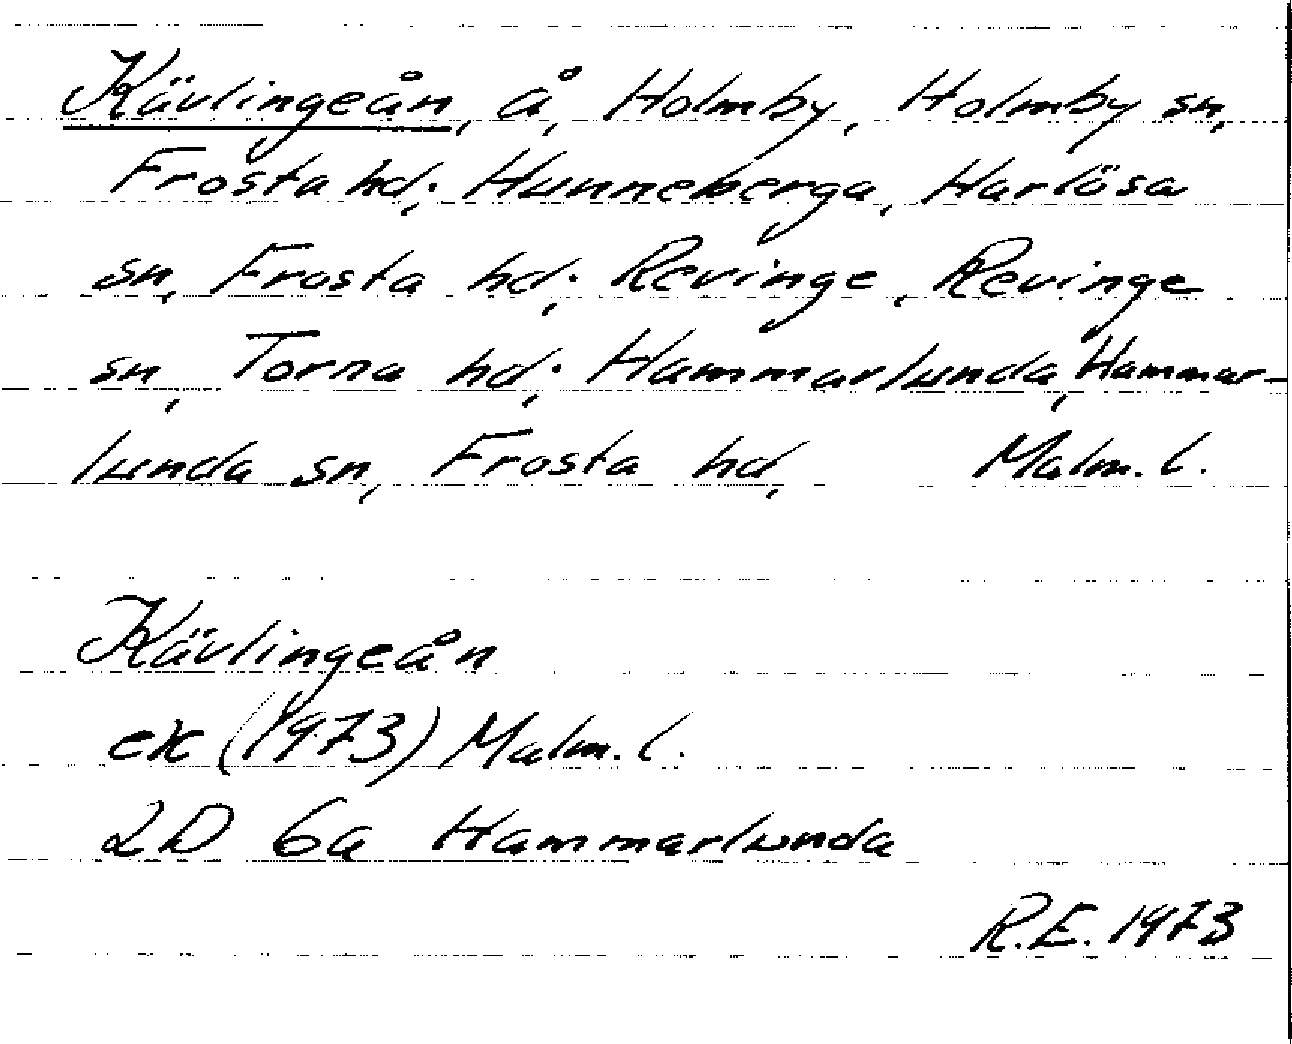 Kävlingeån, å, Holmby, Holmby sn,
Frosta hd; Hunneberga, Harlösa
sn, Frosta hd; Revinge, Revinge
sn, Torna hd; Hammarlunda, Hammar-
lunda sn, Frosta hd, Malm. l.
Kävlingeån
ek (1973) Malm. l.
2D 6a Hammarlunda
R.E. 1973